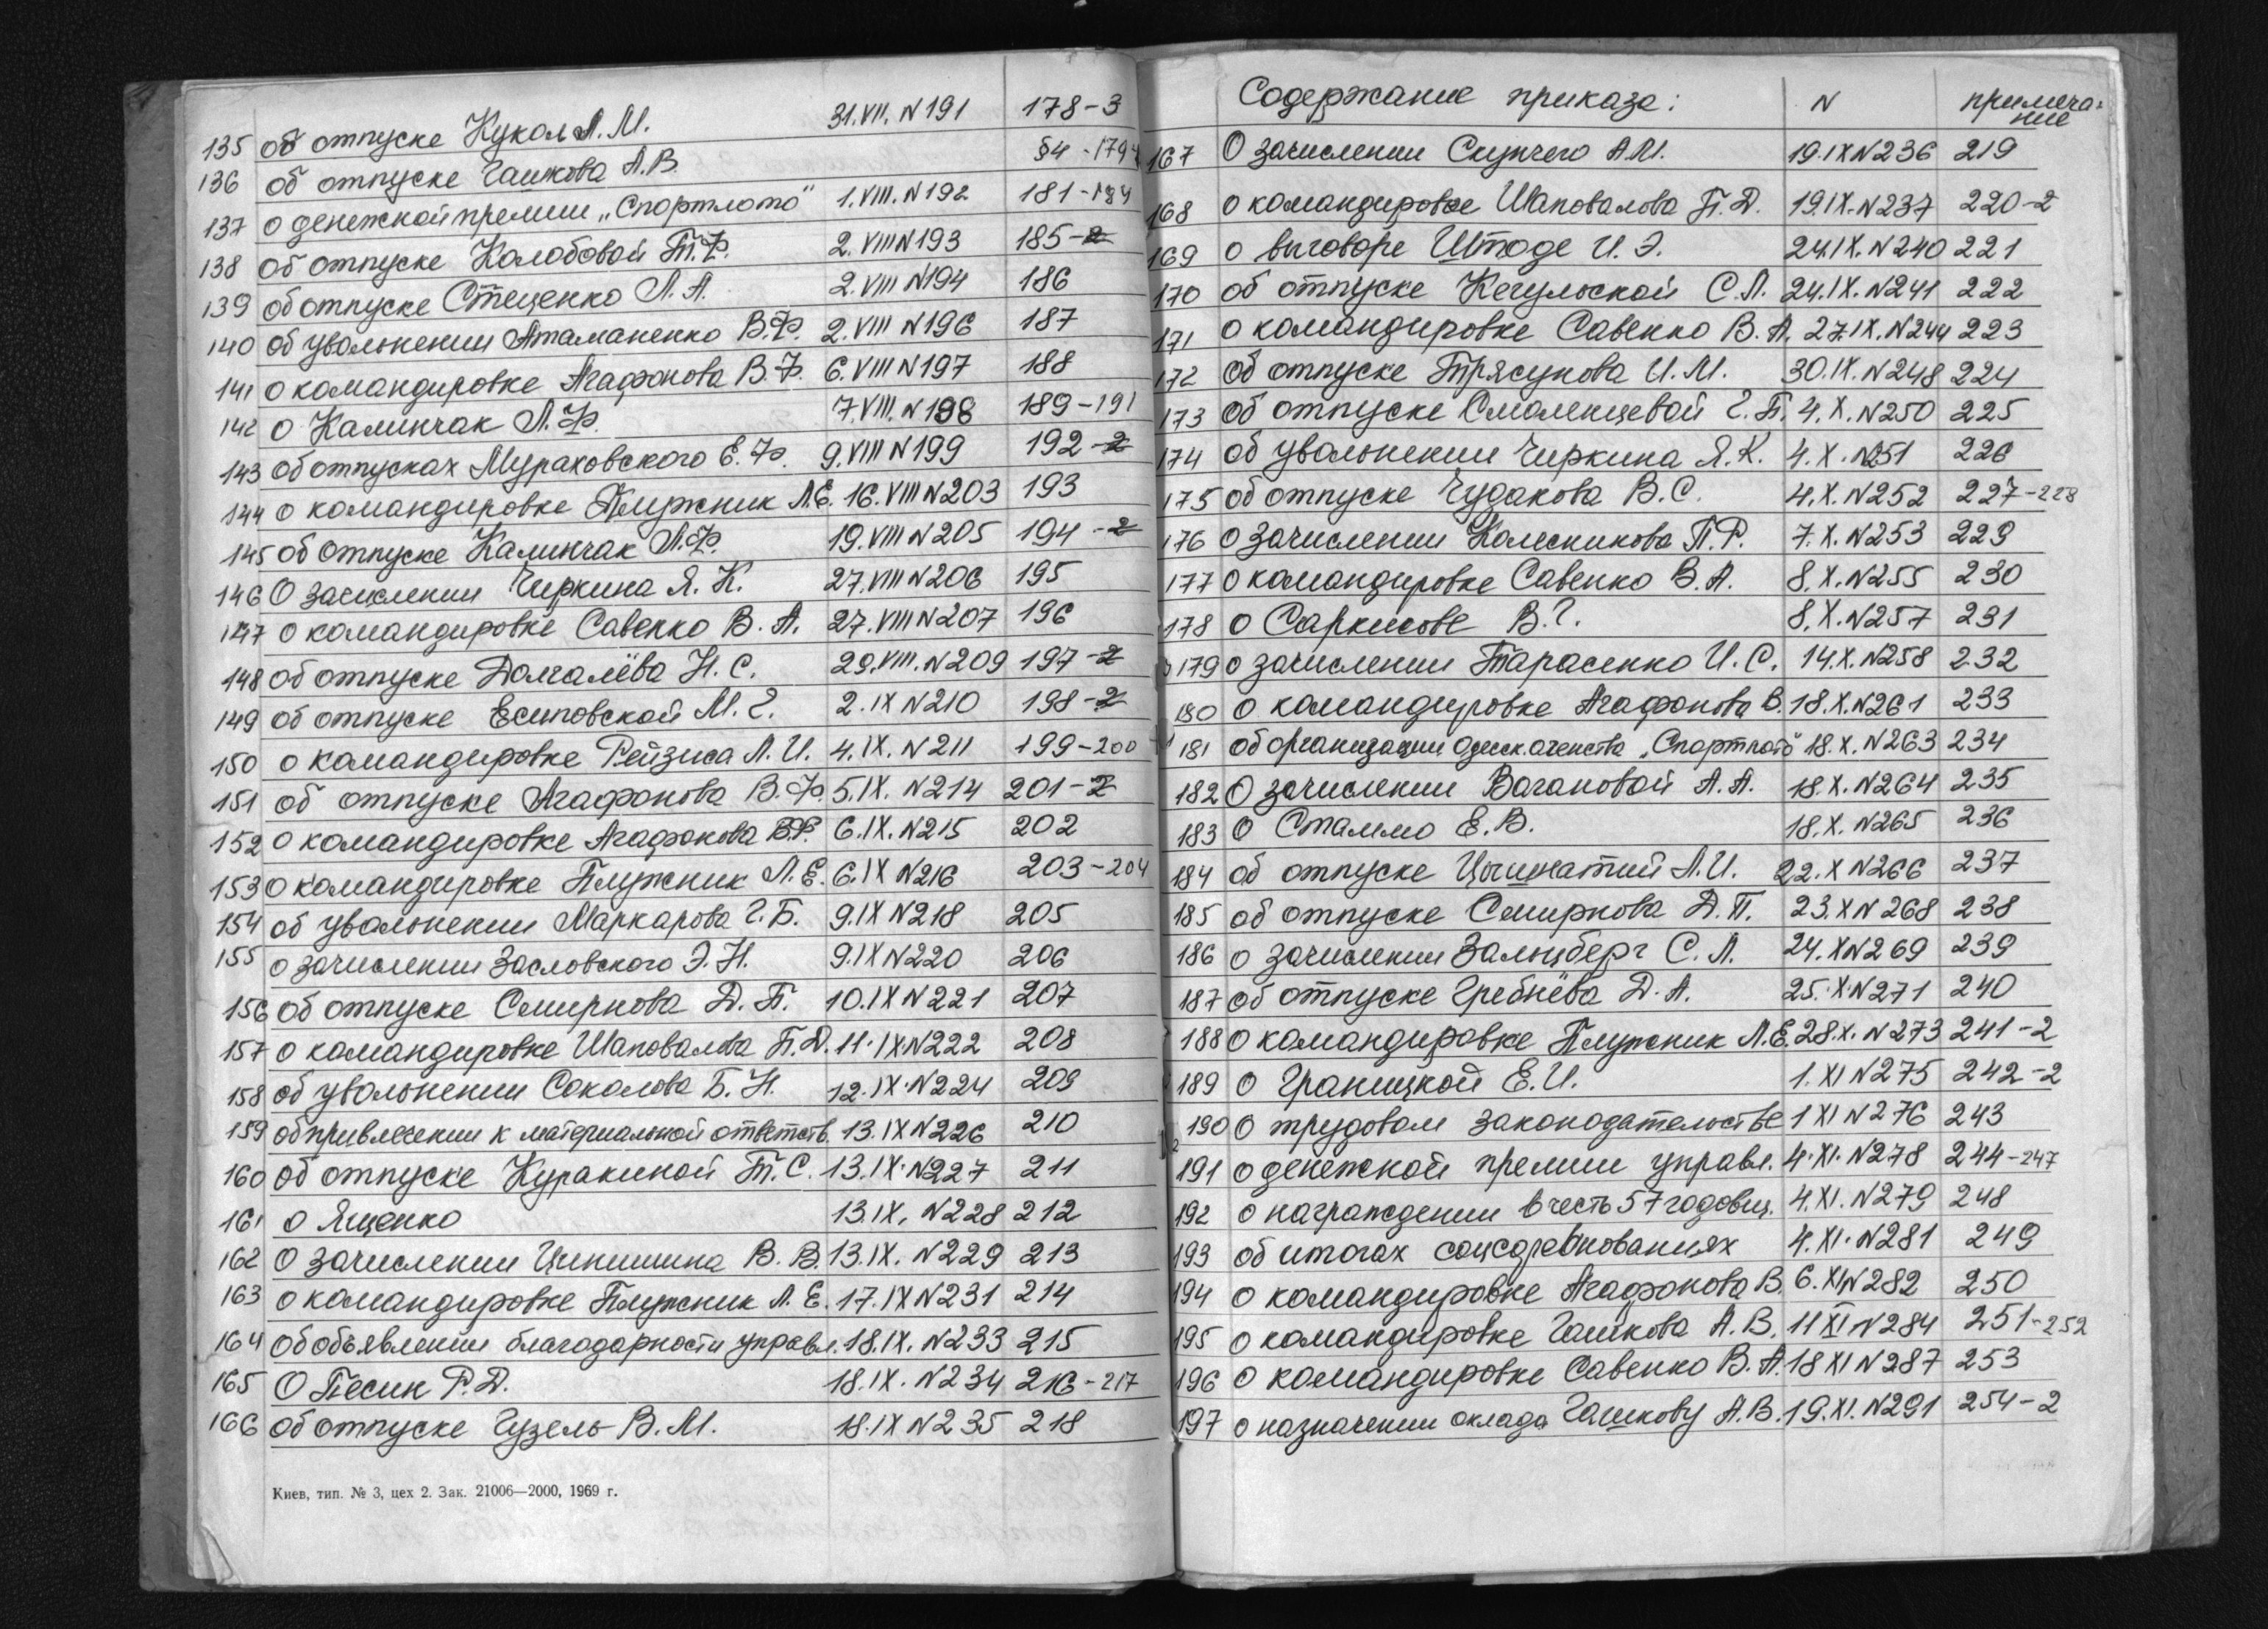 135 об отпуске Кукол А.М. 31.VII. N191 178-3
136 об отпуске Гашкова А.В. §4-179
137 о денежной премии „Спортлото" 1.VIII. N192 181-184
138 об отпуске Колобовой Т.Ф. 2.VIII N193 185-2
139 об отпуске Стеценко Л.А. 2.VIII N194 186
140 об увольнении Атаманенко В.Ф. 2.VIII N196 187
141 о командировке Агафонова В.Ф. 6.VIII N197 188
142 о Калинчак Л.Ф. 7.VIII. N198 189-191
143 об отпусках Мураховского Е.Ф. 9.VIII N199 192-2
144 о командировке Плужник Л.Е. 16.VIII N203 193
145 об отпуске Калинчак Л.Ф. 19.VIII N205 194-2
146 О зачислении Чиркина Я.К. 27.VIII N206 195
147 о командировке Савенко В.А. 27.VIII N207 196
148 об отпуске Долгалёва Н.С. 29.VIII. N209 197-2
149 об отпуске Есиповской М.Г. 2.IX N210 198-2
150 о командировке Рейзиса Л.И. 4.IX. N211 199-200
151 об отпуске Агафонова В.Ф. 5.IX. N214 201-2
152 о командировке Агафонова В.Ф. 6.IX. N215 202
153 о командировке Плужник Л.Е. 6.IX N216 203-204
154 об увольнении Маркарова Г.Б. 9.IX N218 205
155 о зачислении Засловского Э.Н. 9.IX N220 206
156 об отпуске Смирнова Д.П. 10.IX N221 207
157 о командировке Шаповалова П.Д. 11.IX N222 208
158 об увольнении Соколова Б.Н. 12.IX. N224 209
159 об привлечении к материальной ответств. 13.IX N226 210
160 об отпуске Куракиной Т.С. 13.IX. N227 211
161 о Ященко 13.IX. N228 212
162 О зачислении Цинишина В.В. 13.IX. N229 213
163 о командировке Плужник Л.Е. 17.IX N231 214
164 об объявлении благодарности управл. 18.IX. N233 215
165 О Песик Р.Д. 18.IX. N234 216-217
166 об отпуске Гузель В.М. 18.IX N235 218
Киев, тип. № 3, цех 2. Зак. 21006—2000, 1969 г.
Содержание приказа: N примечание
167 О зачислении Скупчего А.М. 19.IX N236 219
168 о командировке Шаповалова П.Д. 19.IX. N237 220-2
169 о выговоре Штоде И.Э. 24.IX. N240 221
170 об отпуске Кегульской С.Л. 24.IX. N241 222
171 о командировке Савенко В.А. 27.IX. N244 223
172 об отпуске Трясунова И.М. 30.IX. N248 224
173 об отпуске Смоленцевой Г.П. 4.X. N250 225
174 об увольнении Чиркина Я.К. 4.X. N251 226
175 об отпуске Чудакова В.С. 4.X. N252 227-228
176 о зачислении Колесникова П.Р. 7.X. N253 229
177 о командировке Савенко В.А. 8.X. N255 230
178 о Саркисове В.Г. 8.X. N257 231
179 о зачислении Тарасенко И.С. 14.X. N258 232
180 о командировке Агафонова В. 18.X. N261 233
181 об организации Одесск агенства „Спортлото" 18.X. N263 234
182 О зачислении Вагановой А.А. 18.X. N264 235
183 О Стаммо Е.В. 18.X. N265 236
184 об отпуске Л.И. 22.X N266 237
185 об отпуске Смирнова Д.П. 23.X N268 238
186 о зачислении Зальцберг С.Л. 24.X N269 239
187 об отпуске Гребнёва Д.А. 25.X. N271 240
188 О командировке Плужник Л.Е. 28.X. N273 241-2
189 О Границкой Е.И. 1.XI N275 242-2
190 О трудовом законодательстве 1 XI N276 243
191 о денежной премии управл. 4.XI. N278 244-247
192 о награждении в честь 57 годовщ. 4.XI. N279 248
193 об итогах соцсоревнованиях 4.XI. N281 249
194 о командировке Агафонова В. 6.XI N282 250
195 о командировке Гашкова А.В. 11 XI N284 251-252
196 О командировке Савенко В.А. 18 XI N287 253
197 о назначении оклада Гашкову А.В. 19.XI. N291 254-2